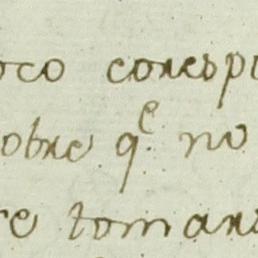 oco corresp
obre q.e no
re tomar